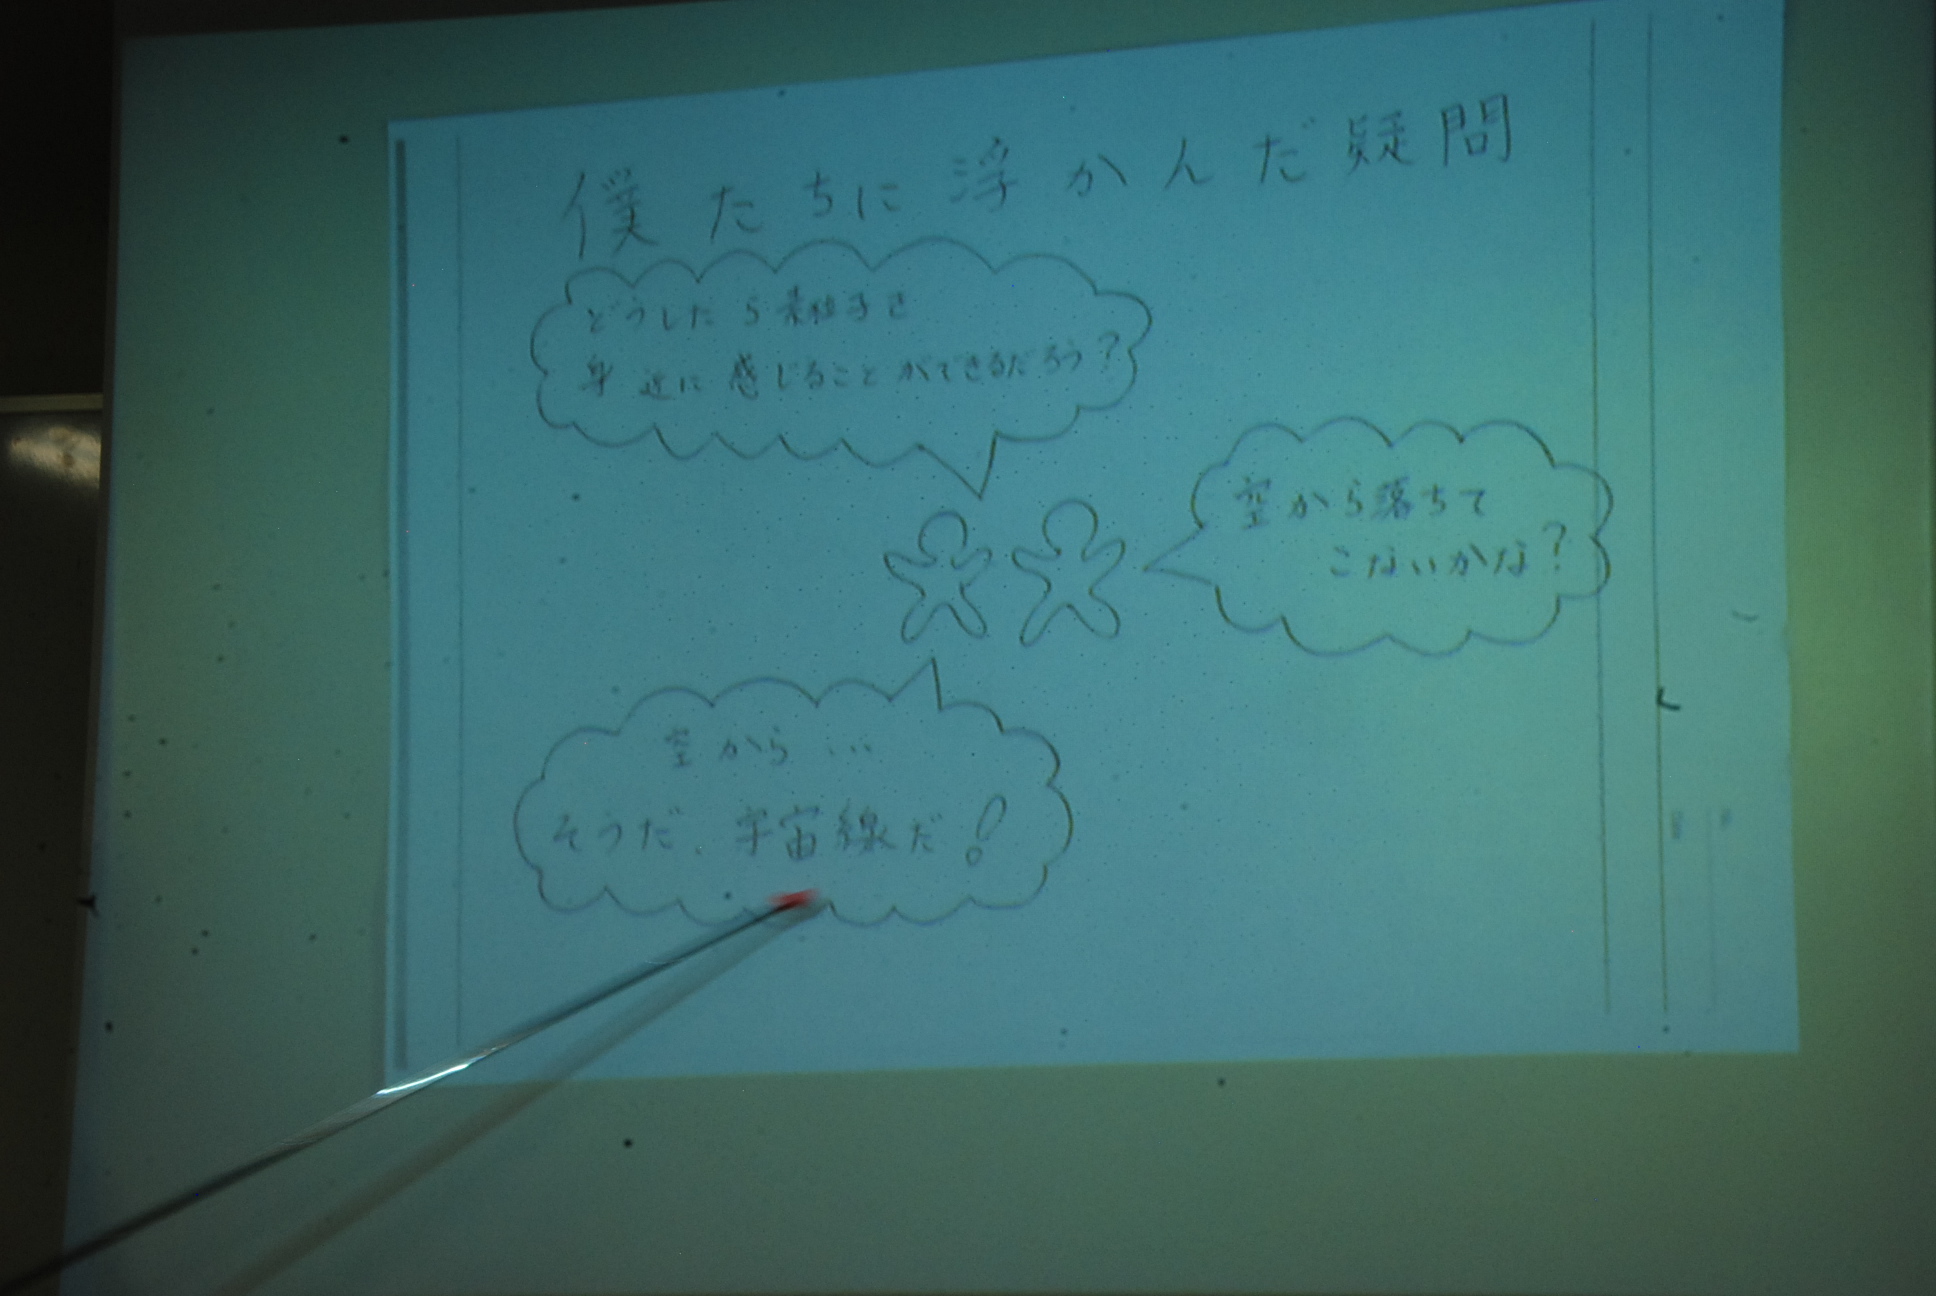 僕たちに浮かんだ疑問
どうしたら素粒子を
身近に感じることができるだろう?
空から落ちて
こないかな?
空から...
そうだ、宇宙線だ!